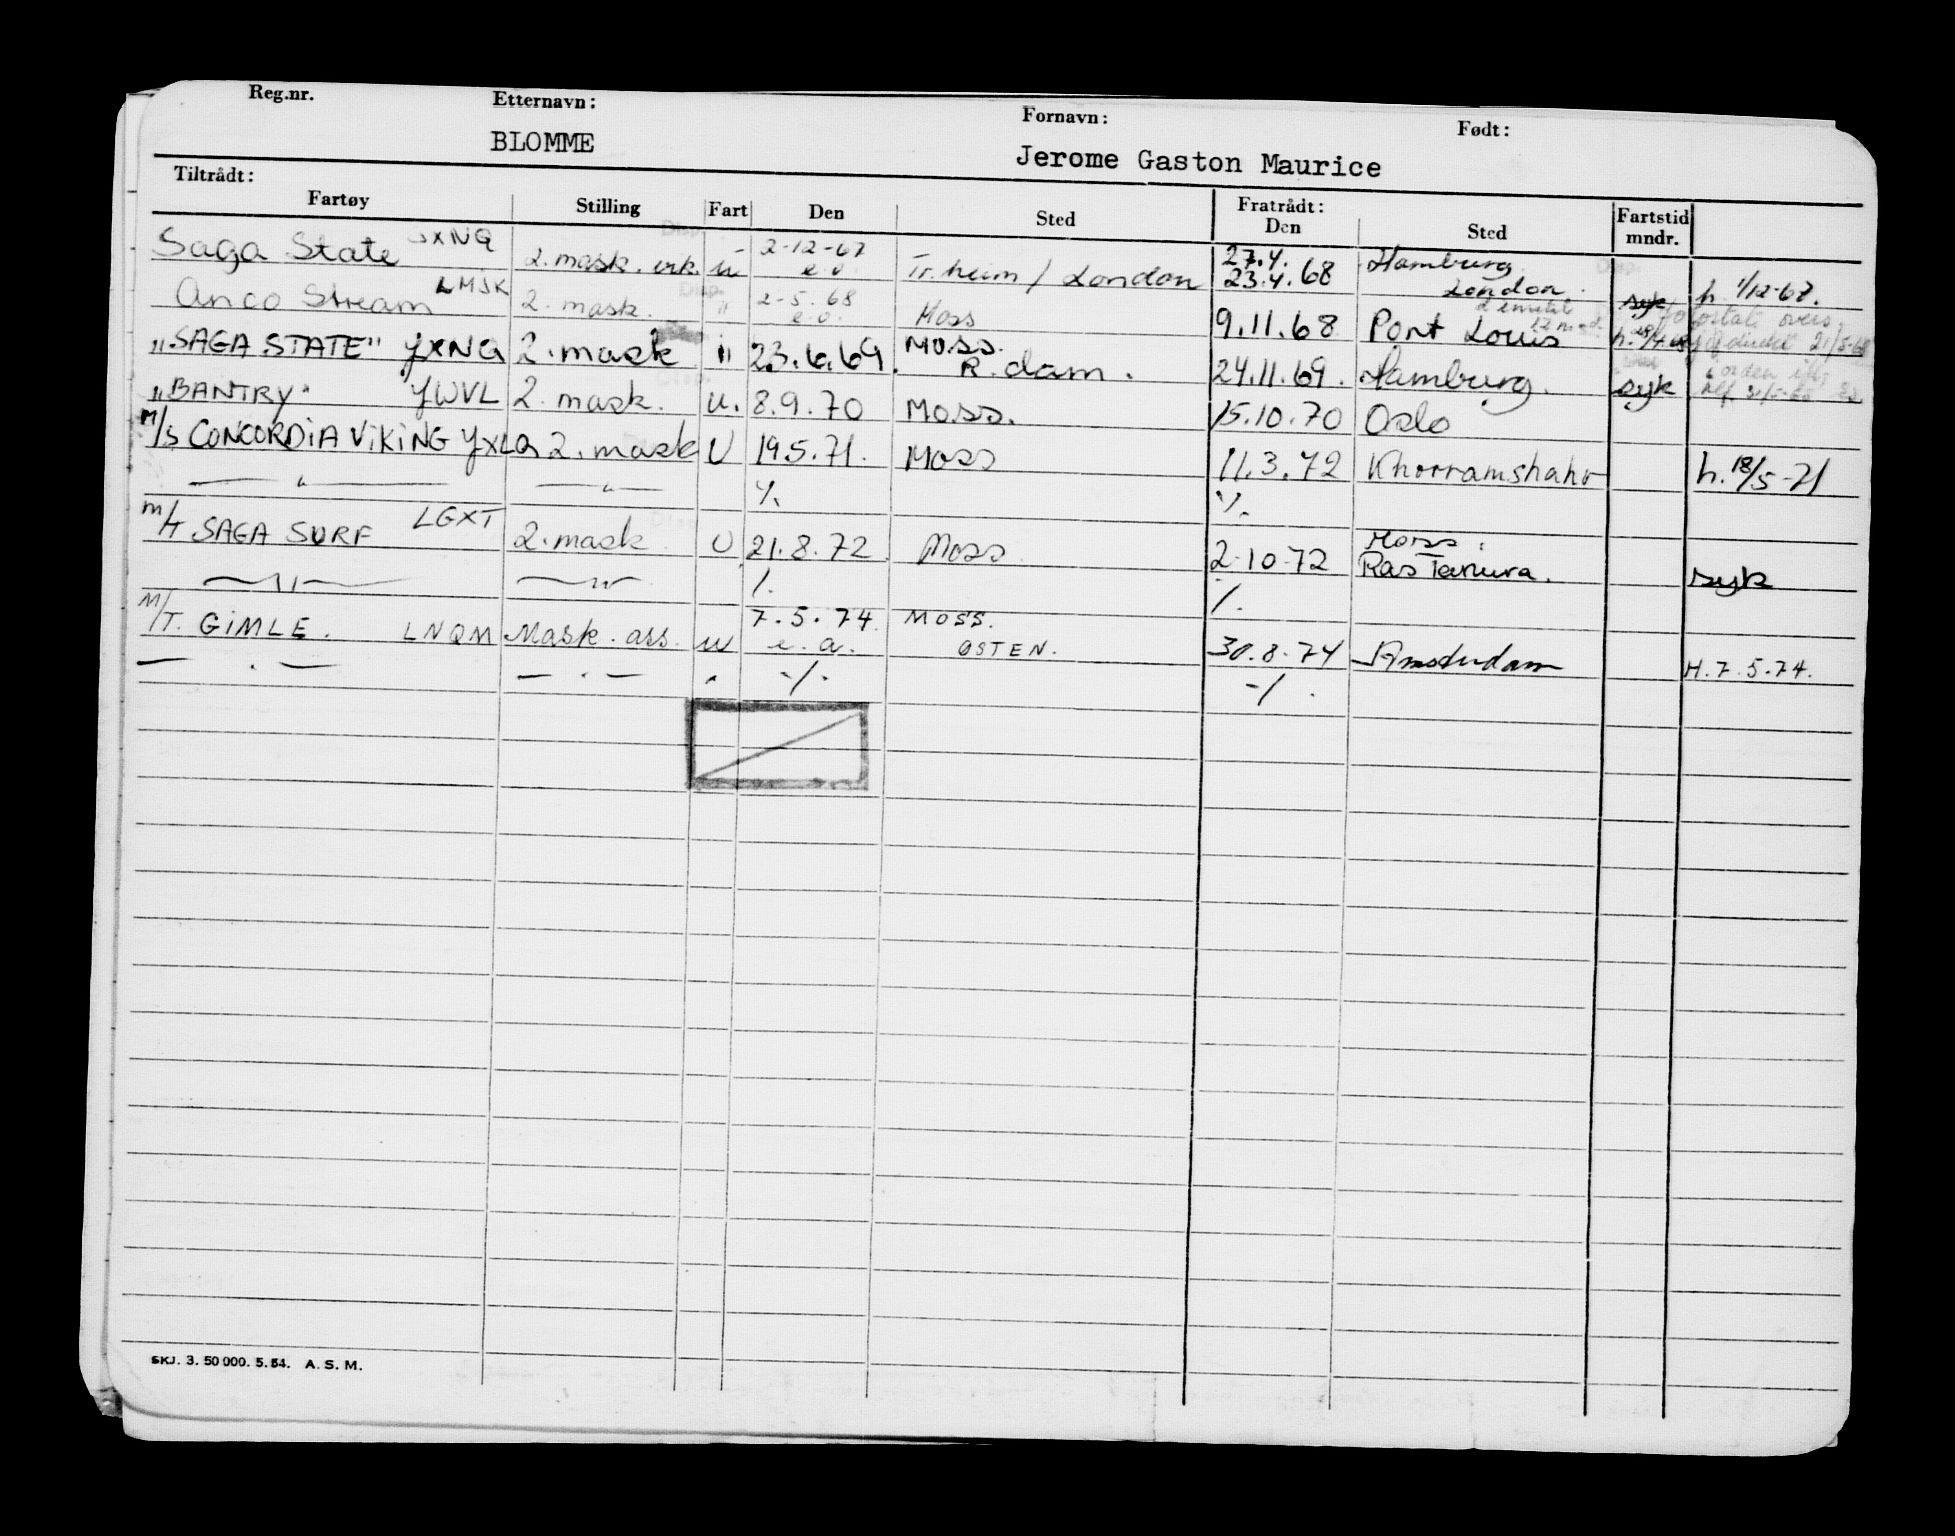 Reg.nr. Etternavn: Fornavn: Født:
BLOMME Jerome Gaston Maurice
Tiltrådt: Fratrådt:
Fartøy Stilling Fart Den Sted Den Sted Fartstid mndr.
Saga State JXNQ 2. mask. erk. u 2-12-67 e.o. Tr.heim / London 27.4. 23.4.68 Hamburg London h. 1/12-67.
Anco Stream LMJK 2. mask. " 2-5.68 e.o. Moss 9.11.68 Port Louis syk
"SAGA STATE" JXNQ 2. mask " 23.6.69. Moss. R.dam. 24.11.69. Hamburg. syk
"BANTRY" JWVL 2. mask. u. 8.9.70 Moss. 15.10.70 Oslo
M/S CONCORDIA VIKING JXLQ 2. mask U 19.5.71. Moss 11.3.72 Khorramshahr h. 18/5-71
— " — — " — ./. ./.
M/T SAGA SURF LGXT 2. mask U 21.8.72 Moss 2-10-72 Moss: Ras Tanura. syk
— " — — " — ./. ./.
M/T. GIMLE. LNQM Mask. ass. u 7.5.74. e.a. MOSS. ØSTEN. 30.8.74 Amsterdam H.7.5.74.
— . — — . — . -/. -/.
SKJ. 3. 50 000. 5. 54. A. S. M.